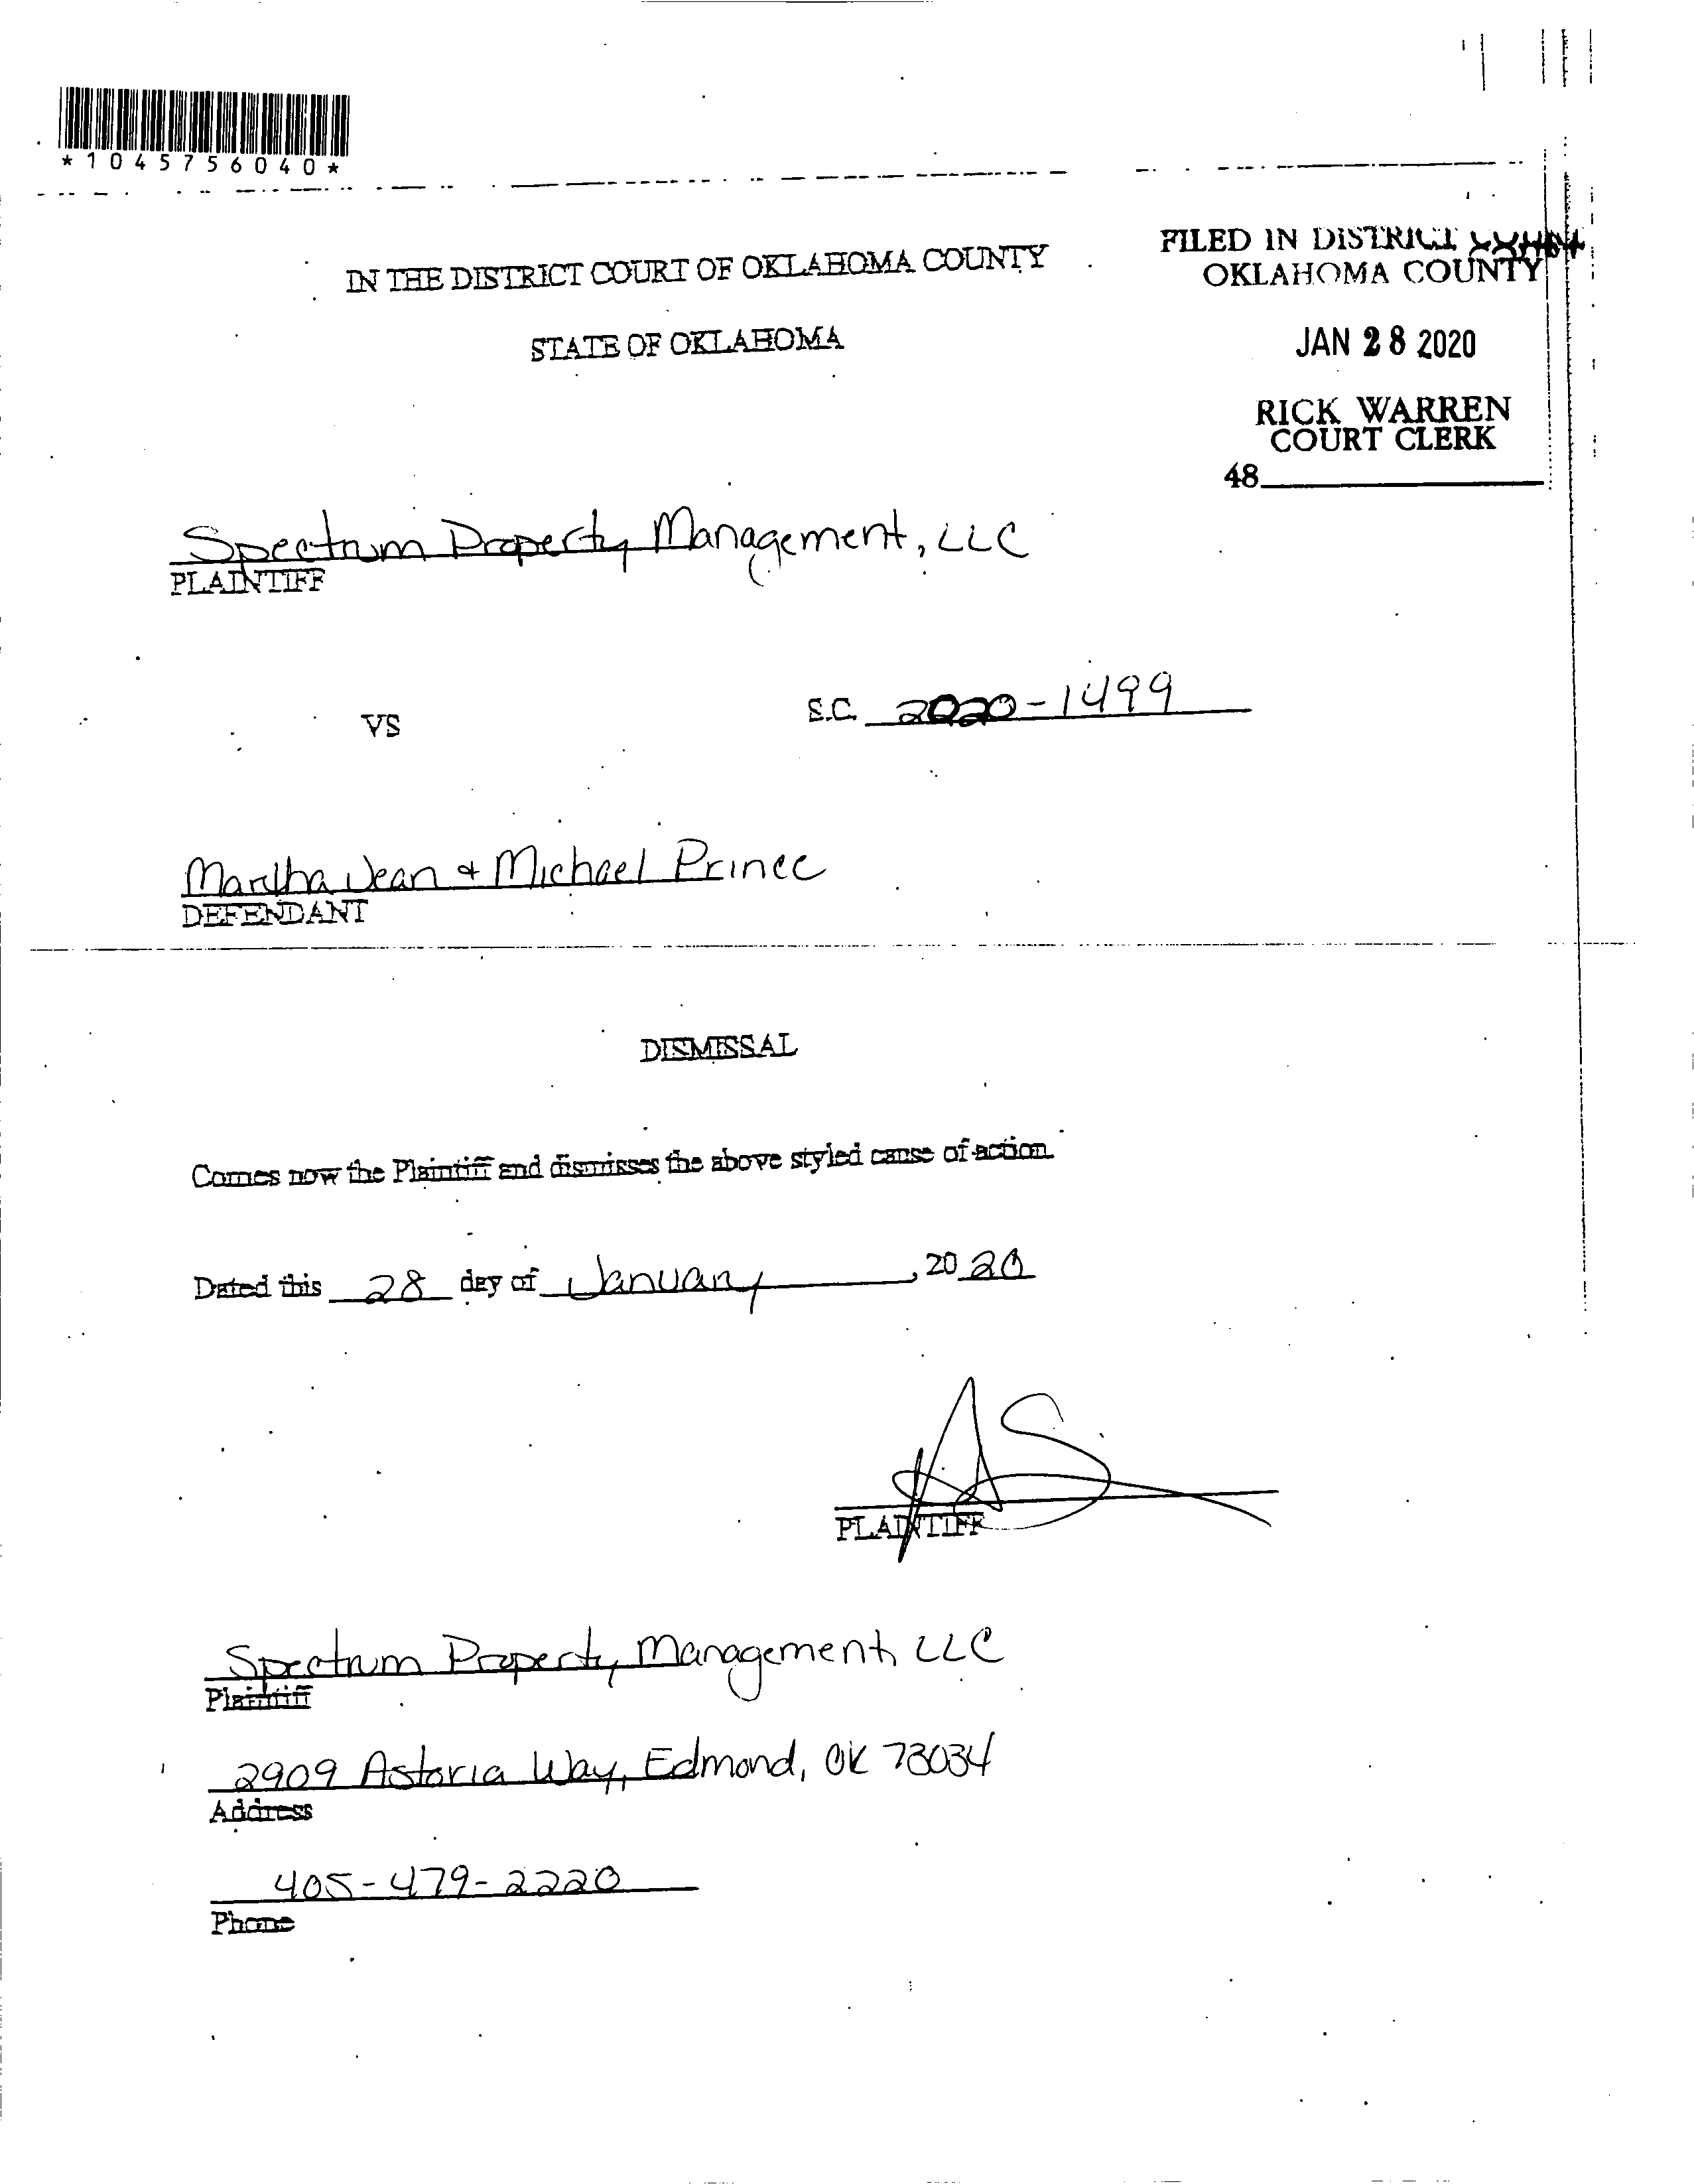 *1045756040*
IN THE DISTRICT COURT OF OKLAHOMA COUNTY
STATE OF OKLAHOMA
FILED IN DISTRICT COURT
OKLAHOMA COUNTY
JAN 28 2020
RICK WARREN
COURT CLERK
48
Spectrum Property Management, LLC
PLAINTIFF
VS
S.C. 2020-1499
Martha Jean & Michael Prince
DEFENDANT
DISMISSAL
Comes now the Plaintiff and dismisses the above styled cause of action.
Dated this 28 day of January, 2020
AS
PLAINTIFF
Spectrum Property Management, LLC
Plaintiff
2909 Astoria Way, Edmond, OK 73034
Address
405-479-2220
Phone